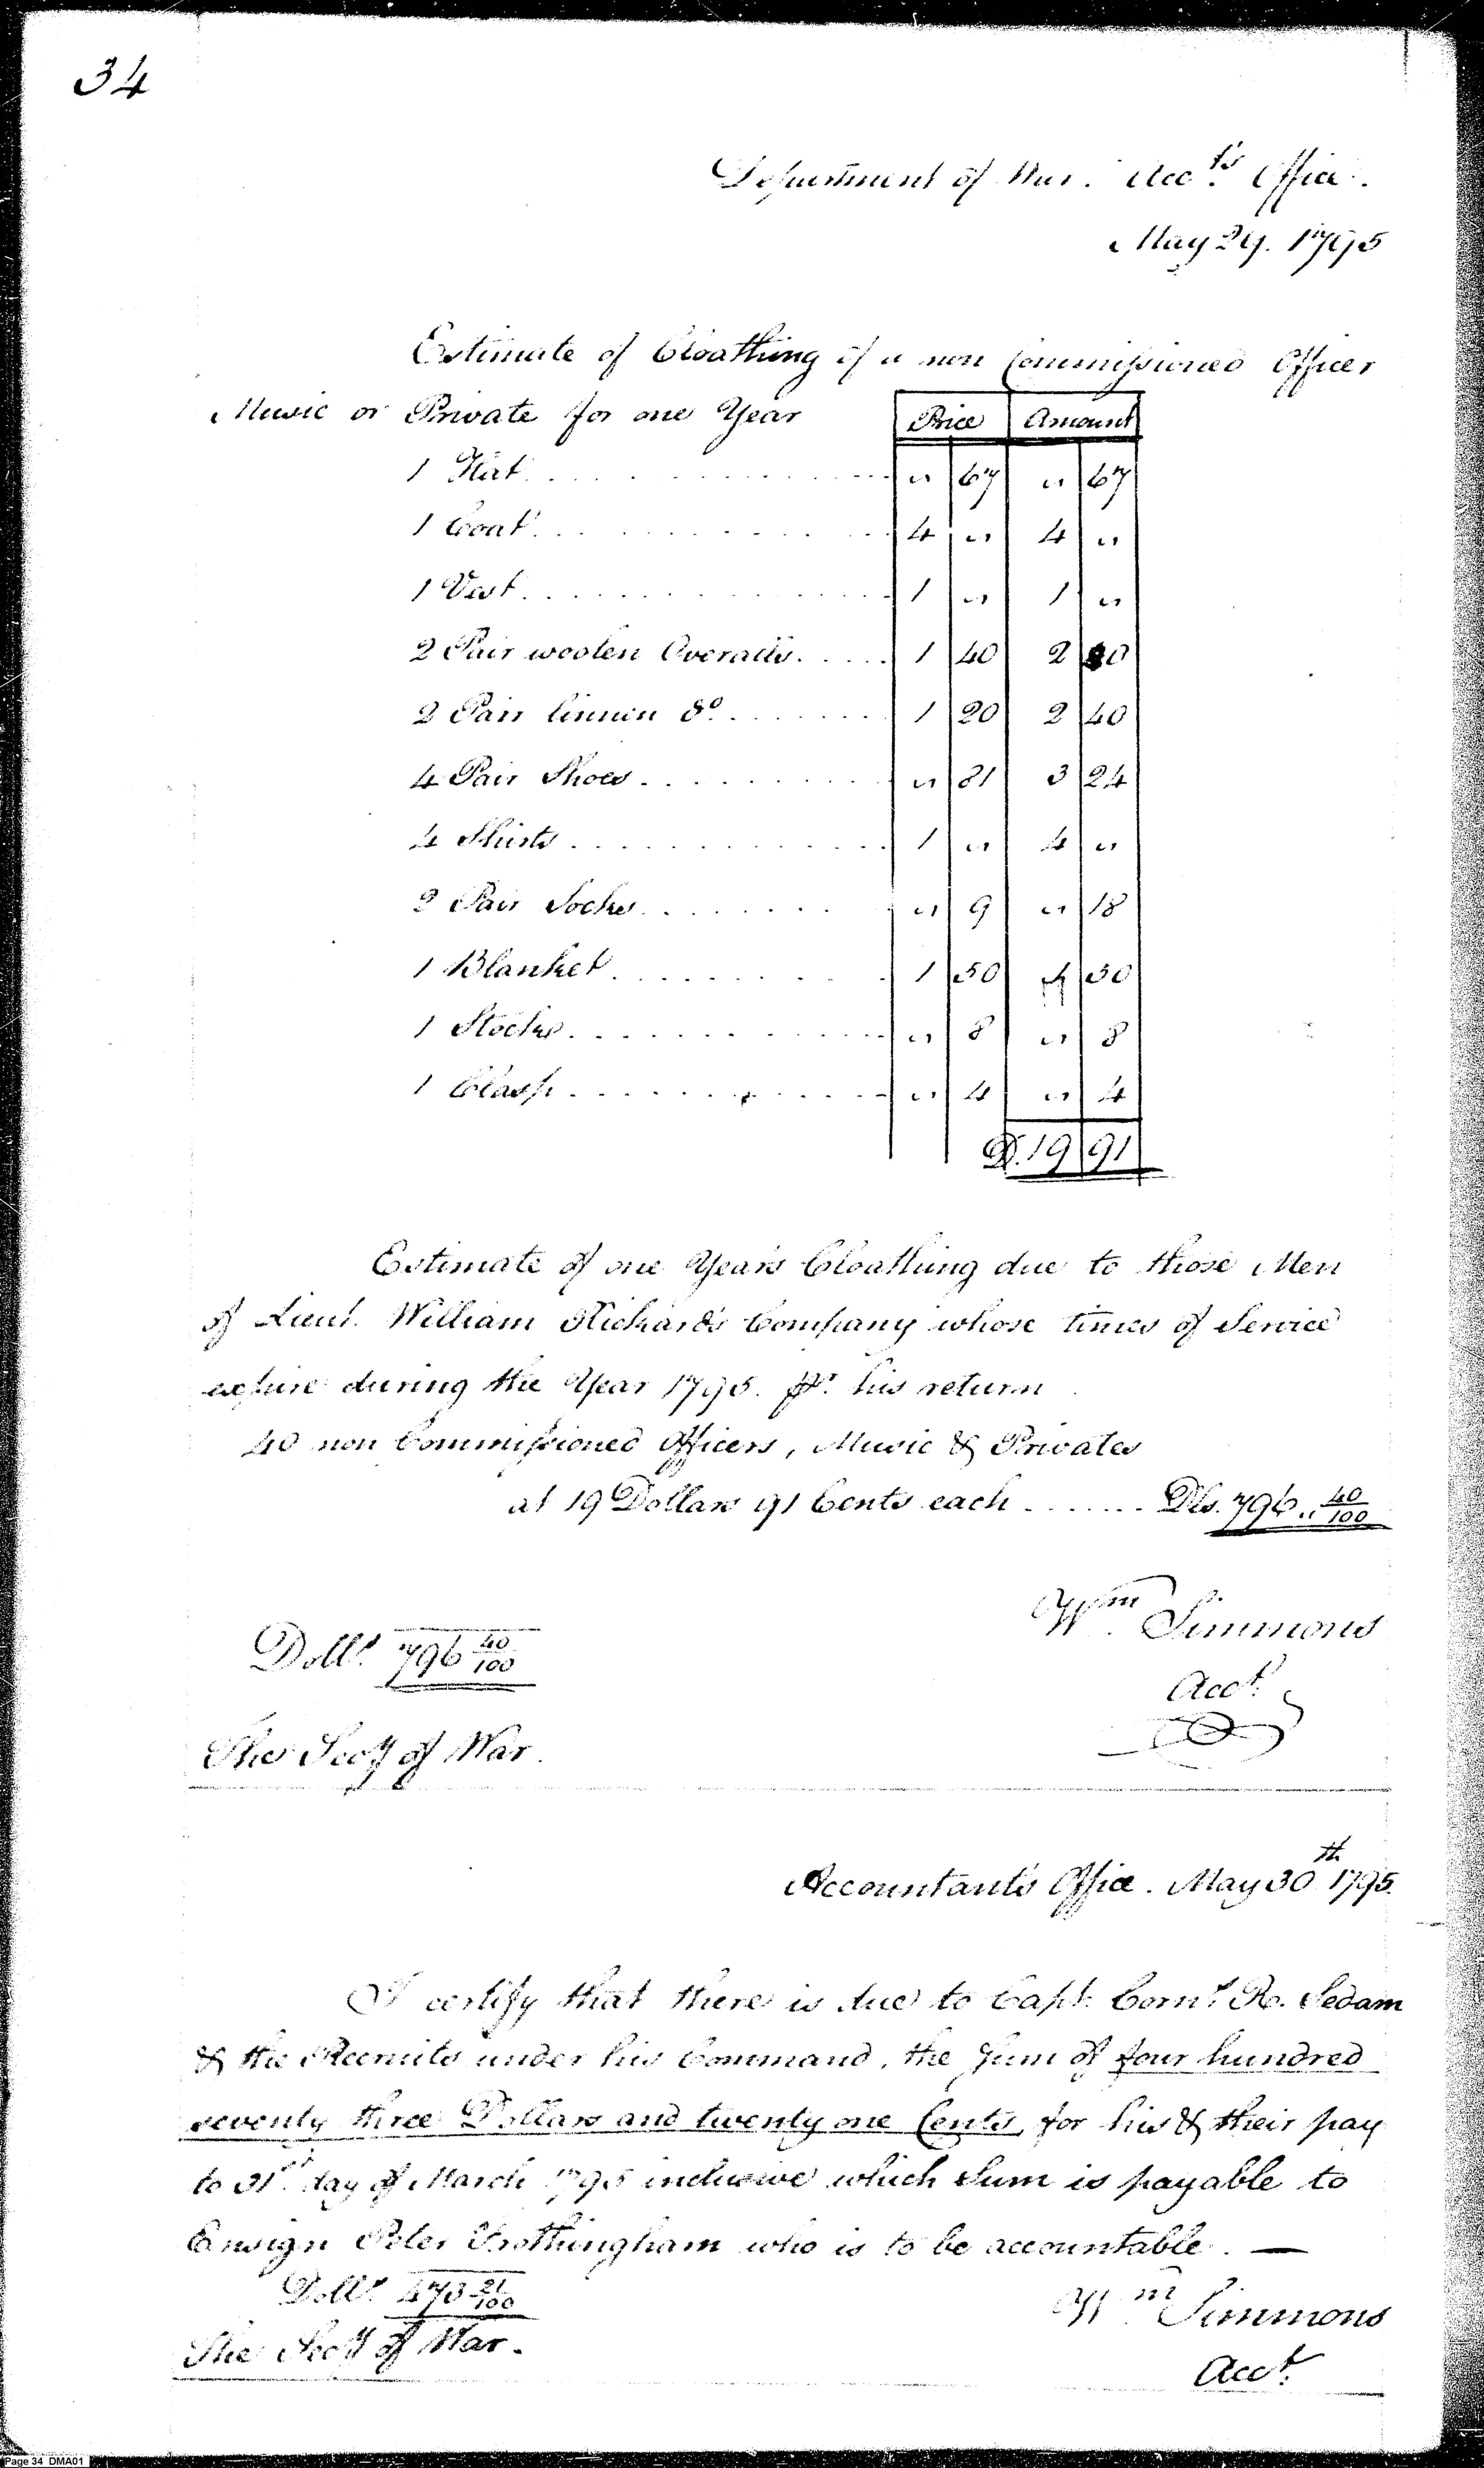 34
Department of War. Acc.ts Office.
May 29. 1795
Estimate of Cloathing of a non Commissioned Officer
Music or Private for one Year Price Amount
1 Hat " 67 " 67
1 Coat 4 " 4 "
1 Vest 1 " 1 "
2 Pair woolen Overalls 1 40 2 80
2 Pair linnen do. 1 20 2 40
4 Pair Shoes " 81 3 24
4 Shirts 1 " 4 "
2 Pair Socks " 9 " 18
1 Blanket 1 50 1 50
1 Stocks " 8 " 8
1 Clasp " 4 " 4
D. 19 91
Estimate of one Years Cloathing due to those Men
of Lieut. William Rickard's Company whose times of Service
expire during the Year 1795. pr. his return
40 non Commissioned Officers, Music & Privates
at 19 Dollars 91 Cents each Dls. 796.. 40/100
Wm. Simmons
Dolls. 796 40/100
Acct.
The Secy of War.
Accountant's Office. May 30th 1795.
I certify that there is due to Capt. Corns. R. Sedam
& the Recruits under his Command, the Sum of four hundred
seventy three Dollars and twenty one Cents, for his & their pay
to 31st. day of March 1795 inclusive which Sum is payable to
Ensign Peter Frothingham who is to be accountable. —
Dolls. 473 21/100
Wm Simmons
The Secy of War.
Acct.
Page 34 DMA01